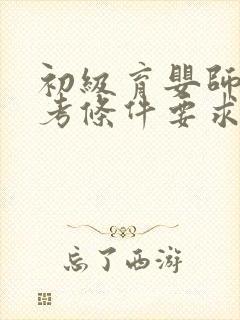 初級育嬰師
考條件要求
忘了西游